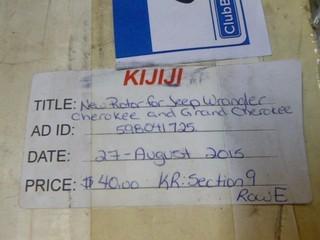 ClubB
KIJIJI
TITLE: New Rotor for Jeep Wrangler
Cherokee and Grand Cherokee
AD ID: 598041725
DATE: 27-August 2015
PRICE: $40.00 KR: Section 9
Row E